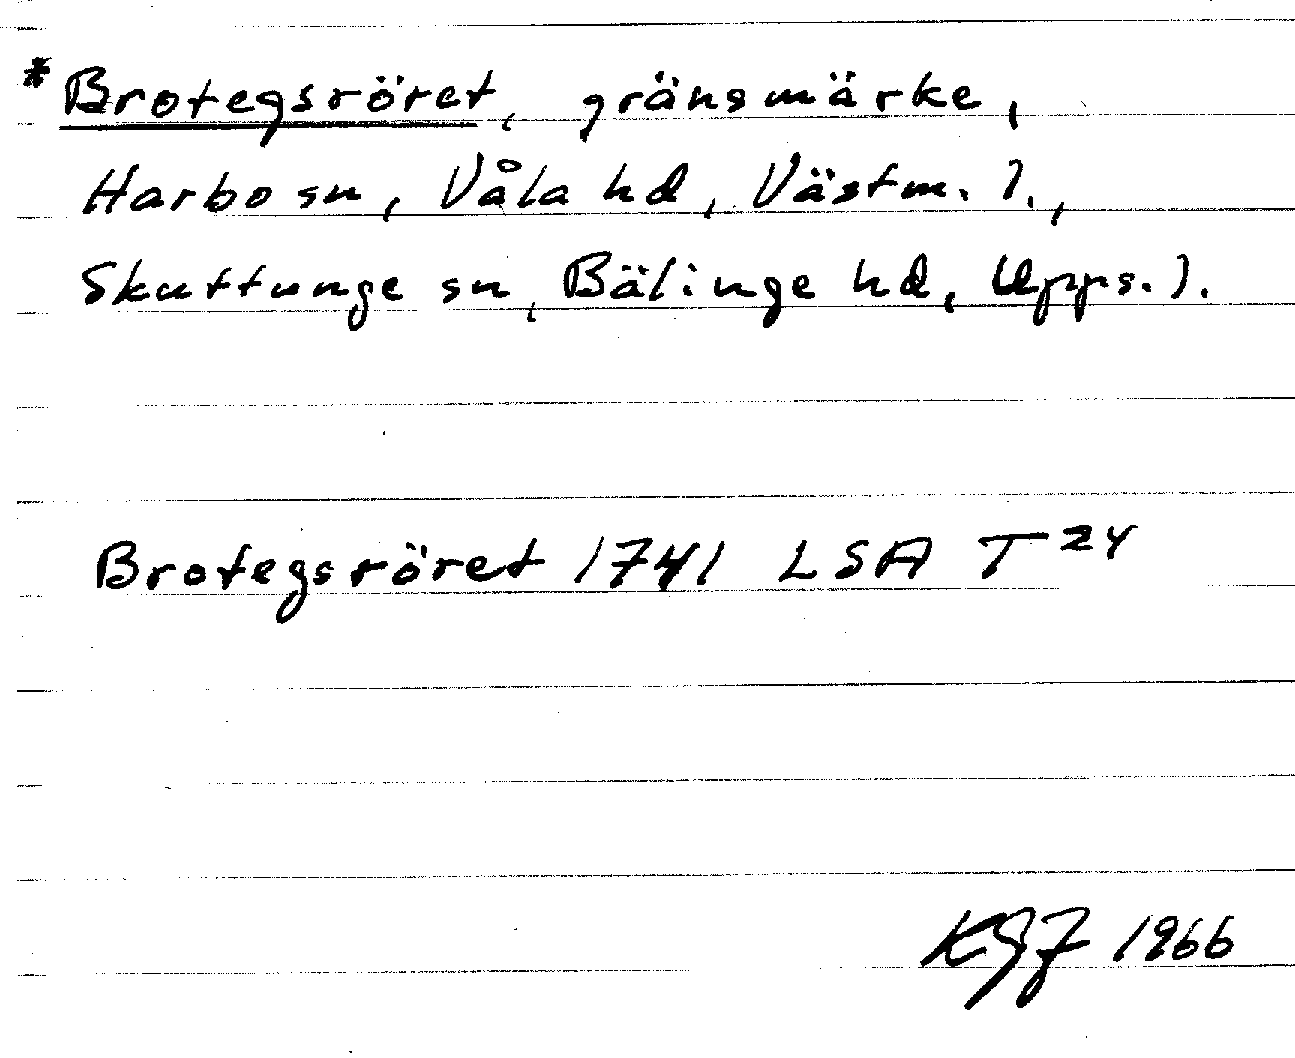 *Brotegsröret, gränsmärke,
Harbo sn, Våla hd, Västm. l.,
Skuttunge sn, Bälinge hd, Upps. l.
Brotegsröret 1741 LSA T 24
1966